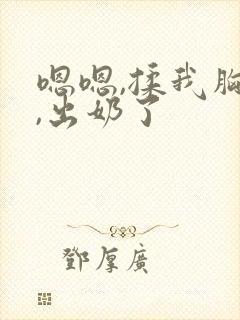 嗯嗯,揉我胸
,出奶了
鄧厚廣